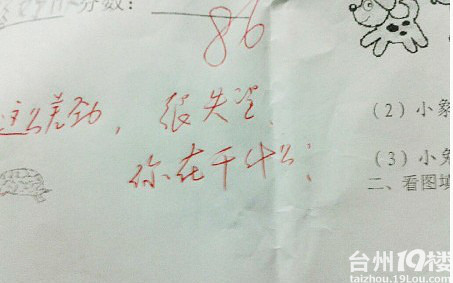 分数:
86
这么差劲,很失望.
你在干什么;
(2)小象
(3)小兔
二、看图填
台州19楼
taizhou.19lou.com